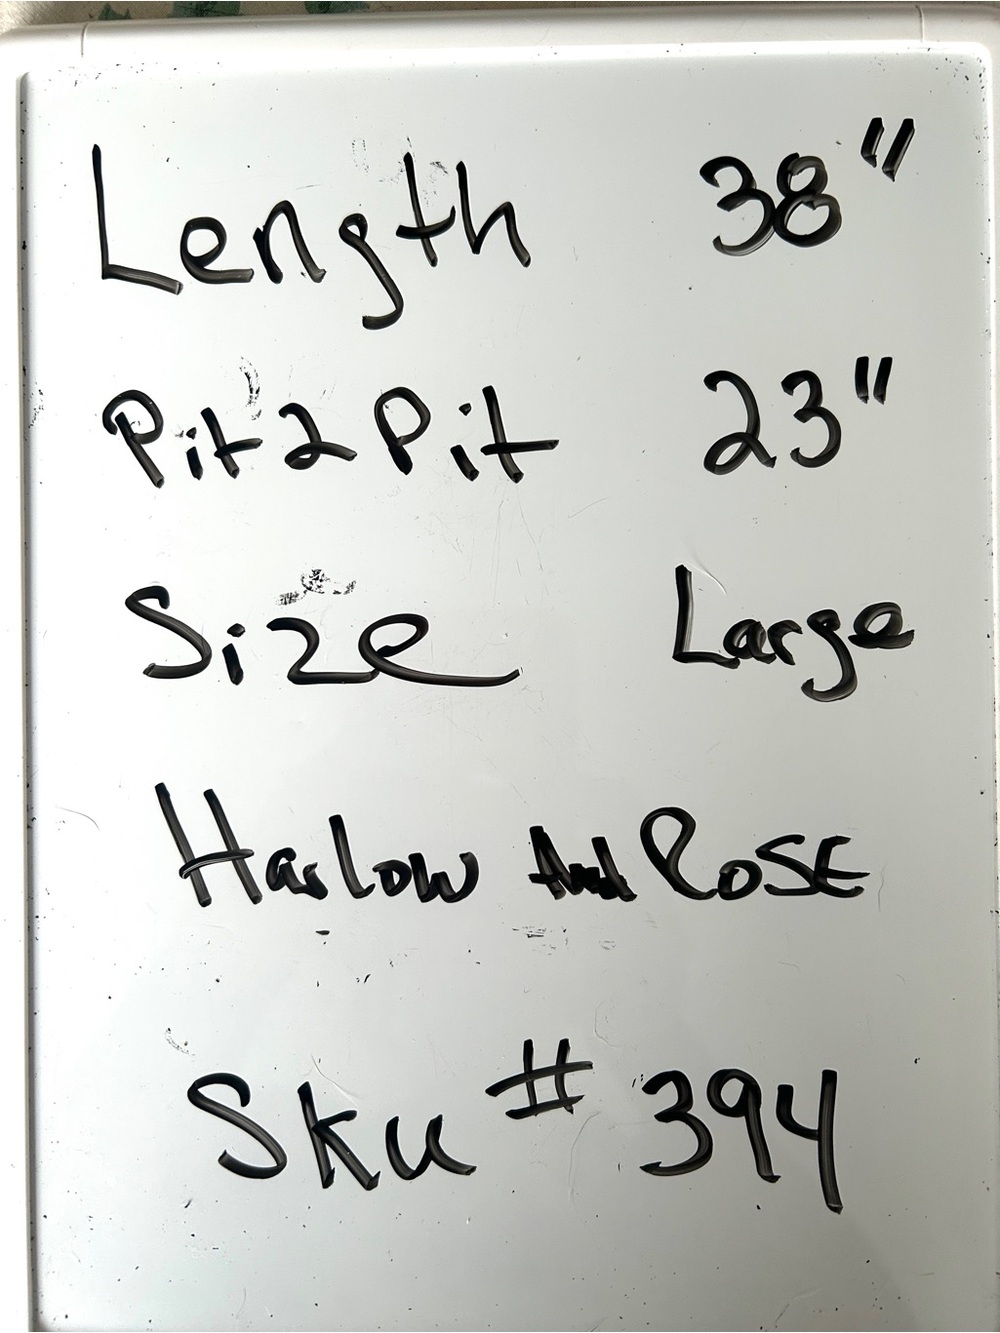 Length 38"
Pit 2 Pit 23"
Size Large
Harlow And RoSE
Sku # 394